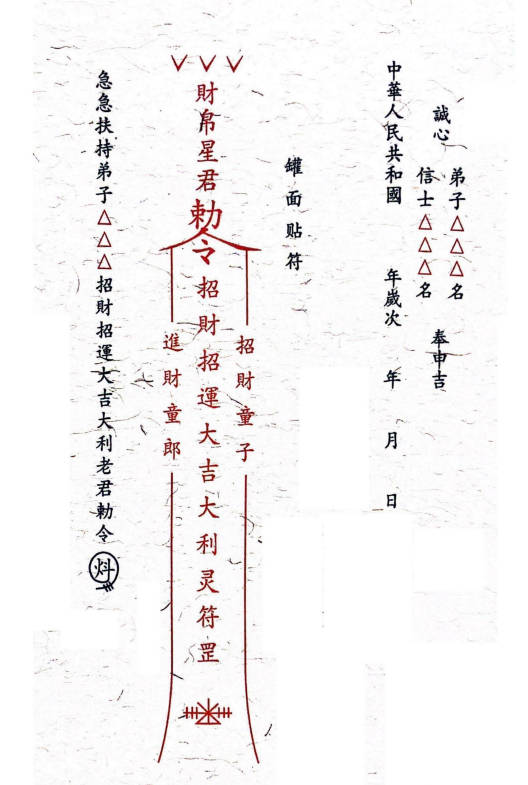 誠心
弟子△△△名
信士△△△名
奉申吉
中華人民共和國 年歲次 年 月 日
罐面貼符
財帛星君勅令招財招運大吉大利灵符罡
招財童子
進財童郎
急急扶持弟子△△△招財招運大吉大利老君勅令